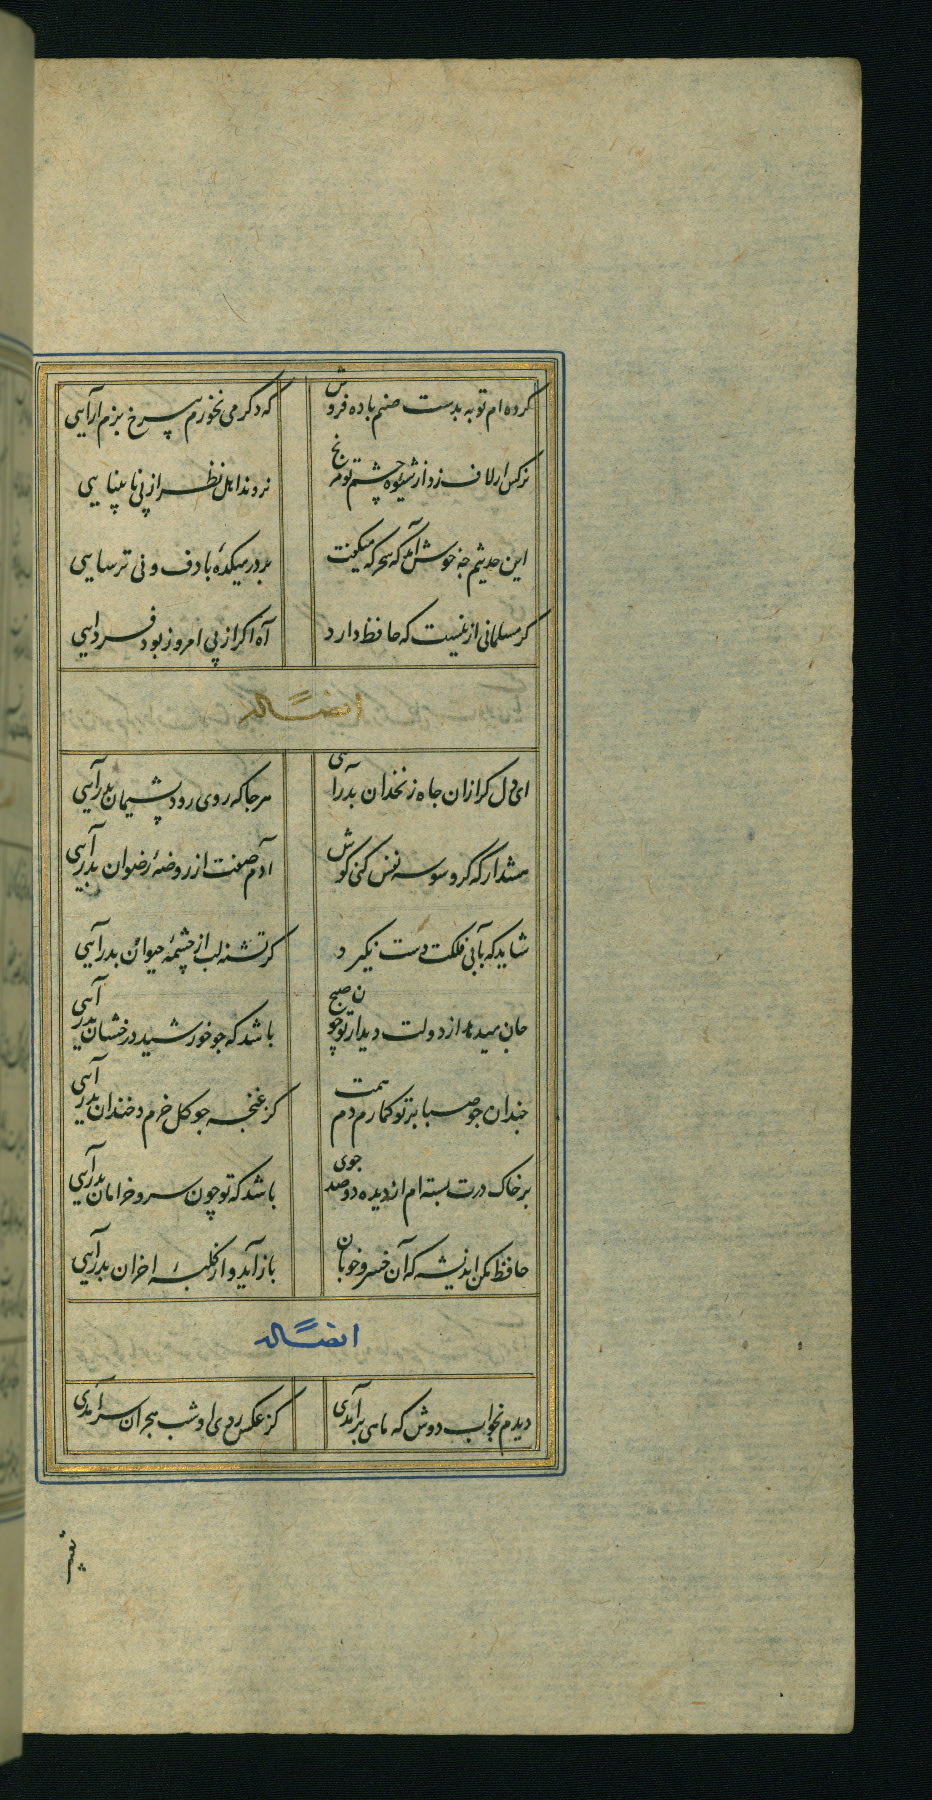 کرده ام توبه بدست صنم باده فروش
که دکر می نخورم بی رخ بزم آرایی
نرکس ار لاف زد از شیوه چشم تو مرنج
نروند اهل نظر از پی نابینایی
این حدیثم چه خوش آمد که سحرکه میکفت
بر در میکدۀ با دف و نی ترسایی
کر مسلمانی ازینست که حافظ دارد
آه اکر از پی امروز بود فردایی
ایضاً له
ای دل کر ازان چاه زنخدان بدرآیی
هرجا که روی زود پشیمان بدرآیی
هشدار که کر وسوسه نفس کنی کوش
آدم صفت از روضۀ رضوان بدرآیی
شاید که بآبی فلکت دست نکیرد
کر تشنه لب از چشمۀ حیوان بدرآیی
جان میدهم از دولت دیدار تو چون صبح
باشد که چو خورشید درخشان بدرآیی
چندان چو صبا بر تو کمارم دم همت
کز غنچه چو کل خرم و خندان بدرآیی
بر خاک درت بسته ام از دیده دو صد جوی
باشد که تو چون سرو خرامان بدرآیی
حافظ مکن اندیشه که آن خسرو خوبان
بازآید و از کلبۀ احزان بدرآیی
ایضاً له
دیدم بخواب دوش که ماهی برآمدی
کز عکس روی او شب هجران سرآمدی
تعبیر